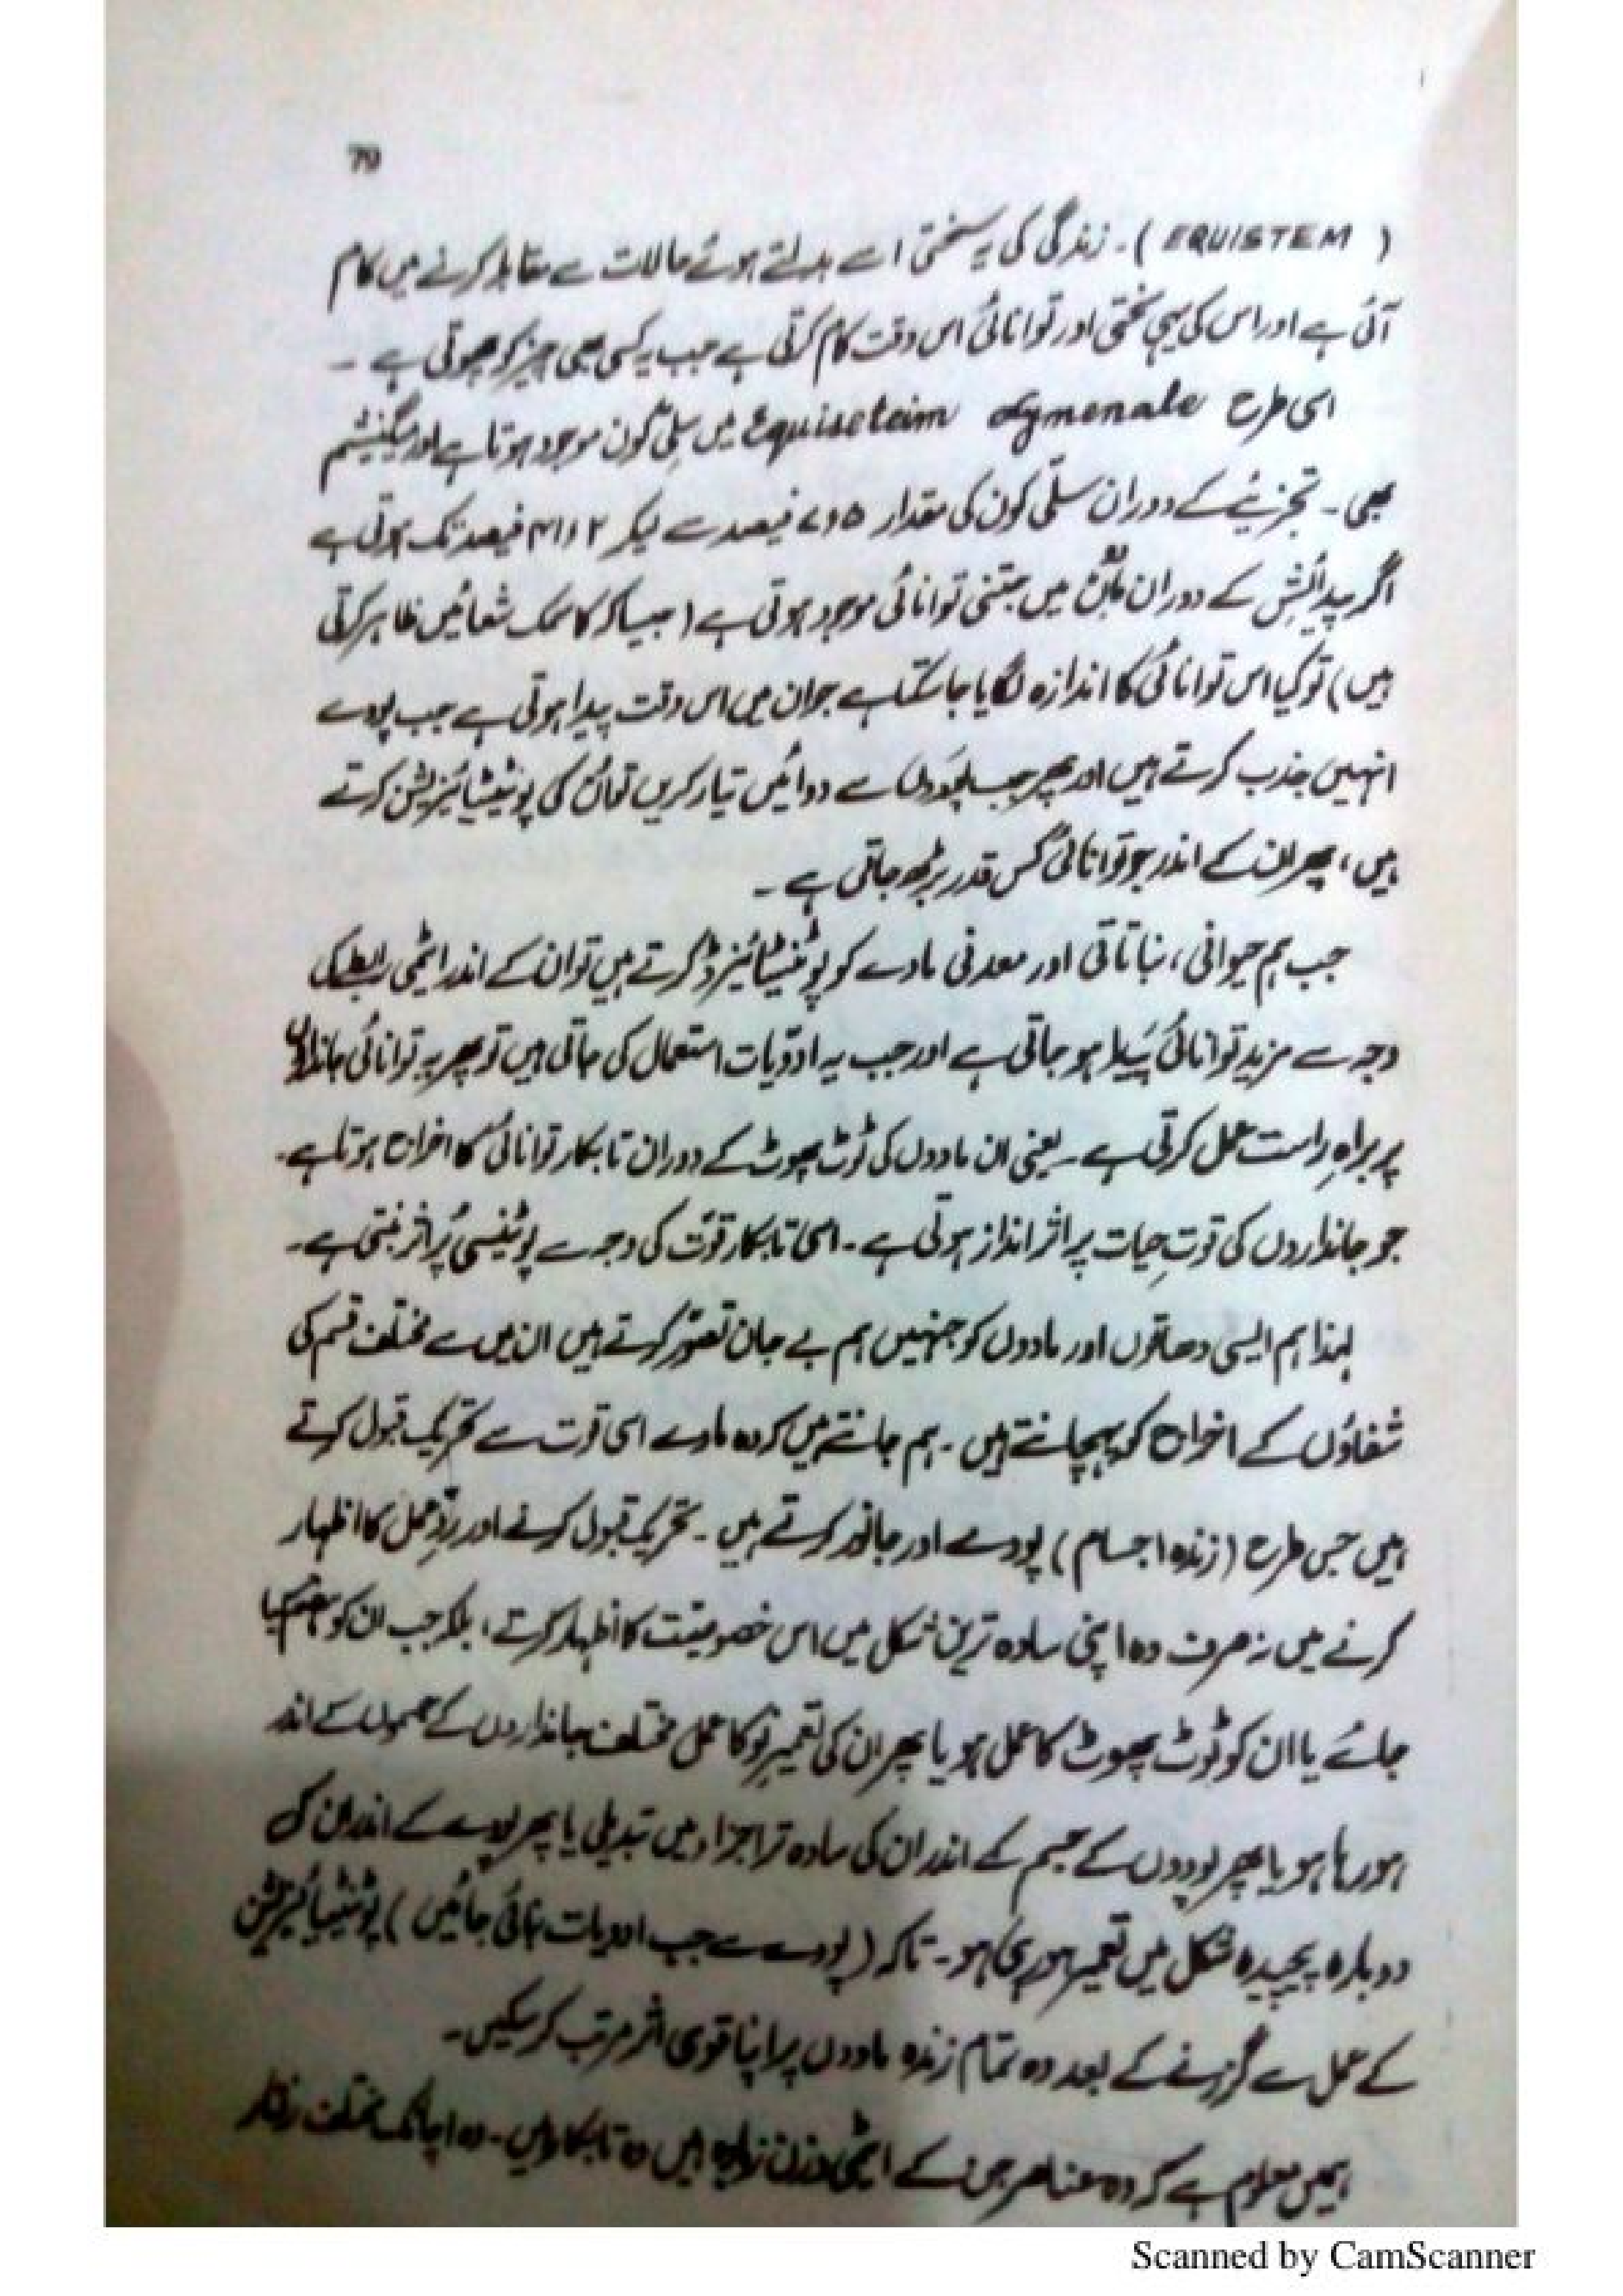 79
( EQUISTEM ) ۔ زندگی کی یہ سختی اسے بدلتے ہوئے حالات سے مقابلہ کرنے میں کام
آئی ہے اور اس کی یہی سختی اور توانائی اس وقت کام کرتی ہے جب یہ کسی بھی چیز کو چھوتی ہے ۔
اسی طرح Equiseteim dymenale میں سلی کون موجود ہوتا ہے اور میگنیشیم
بھی ۔ تجزیئے کے دوران سلی کون کی مقدار ۷٫۵ فیصد سے لیکر ۴۱٫۲ فیصد تک ہوتی ہے
اگر پیدائش کے دوران میں جتنی توانائی موجود ہوتی ہے ( جیسا کہ کاسمک شعائیں ظاہر کرتی
ہیں ) تو کیا اس توانائی کا اندازہ لگایا جا سکتا ہے جو ان میں اس وقت پیدا ہوتی ہے جب پودے
انہیں جذب کرتے ہیں اور پھر جب پودوں سے دوائیں تیار کریں تو ان کی پوٹینشیائزیشن کرتے
ہیں ، پھر ان کے اندر جو توانائی کس قدر بڑھ جاتی ہے ۔
جب ہم حیوانی ، نباتاتی اور معدنی مادے کو پوٹینشیائیزڈ کرتے ہیں تو ان کے اندر ایٹمی رابطے کی
وجہ سے مزید توانائی پیدا ہو جاتی ہے اور جب یہ ادویات استعمال کی جاتی ہیں تو پھر یہ توانائی جانداروں
پر براہِ راست عمل کرتی ہے ۔ یعنی ان مادوں کی ٹوٹ پھوٹ کے دوران تابکار توانائی کا اخراج ہوتا ہے ۔
جو جانداروں کی قوتِ حیات پر اثر انداز ہوتی ہے ۔ اسی تابکار قوت کی وجہ سے پوٹینسی پُر اثر بنتی ہے ۔
لہذا ہم ایسی دھاتوں اور مادوں کو جنہیں ہم بے جان تصور کرتے ہیں ان میں سے مختلف قسم کی
شعاؤں کے اخراج کو پہچانتے ہیں ۔ ہم جانتے ہیں کہ وہ مادے اسی قوت سے تحریک قبول کرتے
ہیں جس طرح ( زندہ اجسام ) پودے اور جانور کرتے ہیں ۔ تحریک قبول کرنے اور ردِّ عمل کا اظہار
کرنے میں نہ صرف وہ اپنی سادہ ترین شکل میں اس خصوصیّت کا اظہار کرتے ، بلکہ جب ان کو
جائے یا ان کو ٹوٹ پھوٹ کا عمل ہو یا پھر ان کی تعمیرِ نو کا عمل مختلف جانداروں کے جسموں کے اندر
ہو رہا ہو یا پھر پودوں کے جسم کے اندر ان کی سادہ تر اجزاء میں تبدیلی یا پھر پودے کے اندر ان کی
دوبارہ پیچیدہ شکل میں تعمیر ہو رہی ہو ۔ تاکہ ( پودے سے جب ادویات بنائی جائیں ) پوٹینشیائزیشن
کے عمل سے گزرنے کے بعد وہ تمام زندہ مادوں پر اپنا قوی اثر مرتب کر سکیں ۔
ہمیں معلوم ہے کہ وہ عناصر جن کے ایٹمی وزن زیادہ ہیں وہ تابکار ہیں ۔ وہ اچانک مختلف رفتار
Scanned by CamScanner